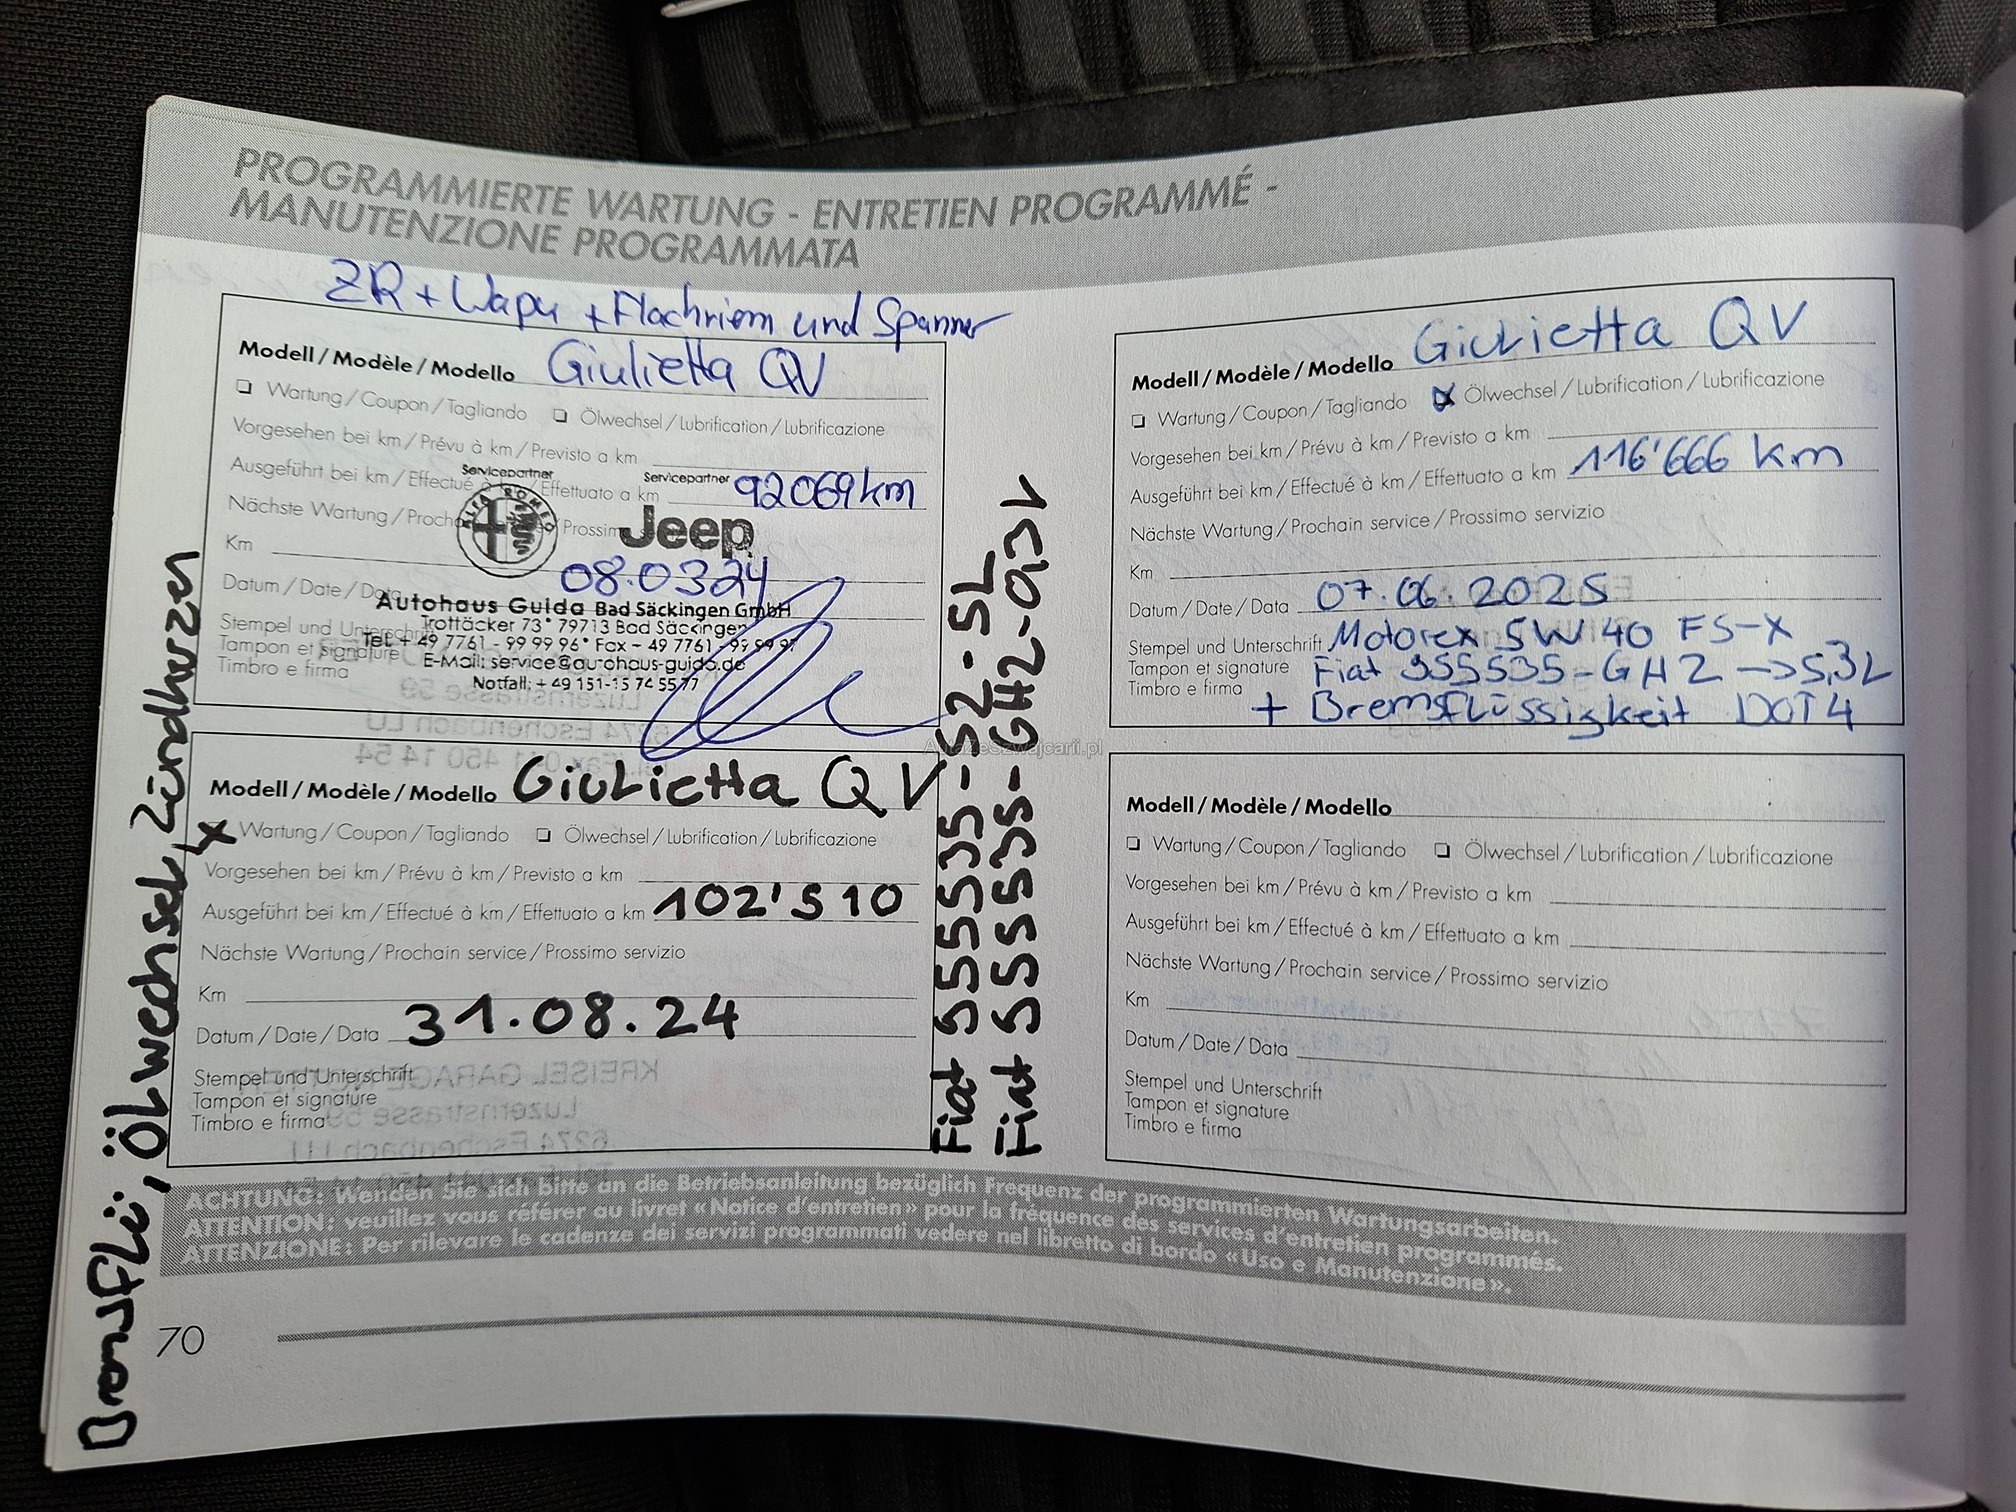 PROGRAMMIERTE WARTUNG - ENTRETIEN PROGRAMMÉ -
MANUTENZIONE PROGRAMMATA
ZR + Wapu + Flachriem und Spanner
Modell / Modèle / Modello Giulietta QV
❏ Wartung / Coupon / Tagliando ❏ Ölwechsel / Lubrification / Lubrificazione
Vorgesehen bei km / Prévu à km / Previsto a km
Servicepartner Servicepartner
Ausgeführt bei km / Effectué à km / Effettuato a km 92069 km
Nächste Wartung / Prochain service / Prossimo
ALFA ROMEO Jeep
Km
Datum / Date / Data 08.03.24
Autohaus Guida Bad Säckingen GmbH
Trottäcker 73 * 79713 Bad Säckingen
Tel: + 49 7761 - 99 99 96 * Fax + 49 7761 - 99 99 97
E-Mail: service@autohaus-guida.de
Notfall: + 49 151-15 74 55 77
Stempel und Unterschrift
Tampon et signature
Timbro e firma
Modell / Modèle / Modello GiuLietta QV
Wartung / Coupon / Tagliando ❏ Ölwechsel / Lubrification / Lubrificazione
Vorgesehen bei km / Prévu à km / Previsto a km
Ausgeführt bei km / Effectué à km / Effettuato a km 102'510
Nächste Wartung / Prochain service / Prossimo servizio
Km
Datum / Date / Data 31.08.24
Stempel und Unterschrift
Tampon et signature
Timbro e firma
Bremsflü, ÖLwechsel, Zündkerzen
4x
Fiat 555535-S2-5L
Fiat 555535-GH2-0,3L
Modell / Modèle / Modello GiuLietta QV
❏ Wartung / Coupon / Tagliando ☒ Ölwechsel / Lubrification / Lubrificazione
Vorgesehen bei km / Prévu à km / Previsto a km
Ausgeführt bei km / Effectué à km / Effettuato a km 116'666 km
Nächste Wartung / Prochain service / Prossimo servizio
Km
Datum / Date / Data 07.06.2025
Stempel und Unterschrift Motorex 5W40 FS-X
Tampon et signature Fiat 955535-GH2 -> 5,3L
Timbro e firma
+ Bremsflüssigkeit DOT4
AutazeSzwajcarii.pl
Modell / Modèle / Modello
❏ Wartung / Coupon / Tagliando ❏ Ölwechsel / Lubrification / Lubrificazione
Vorgesehen bei km / Prévu à km / Previsto a km
Ausgeführt bei km / Effectué à km / Effettuato a km
Nächste Wartung / Prochain service / Prossimo servizio
Km
Datum / Date / Data
Stempel und Unterschrift
Tampon et signature
Timbro e firma
ACHTUNG: Wenden Sie sich bitte an die Betriebsanleitung bezüglich Frequenz der programmierten Wartungsarbeiten.
ATTENTION: veuillez vous référer au livret «Notice d'entretien» pour la fréquence des services d'entretien programmés.
ATTENZIONE: Per rilevare le cadenze dei servizi programmati vedere nel libretto di bordo «Uso e Manutenzione».
70